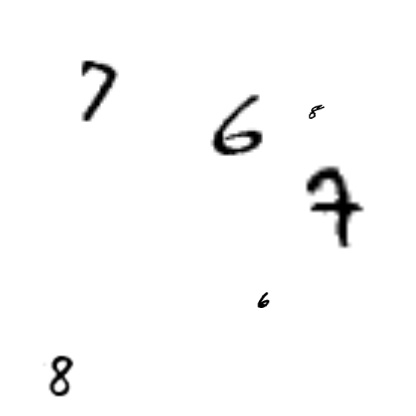 7
6
8
7
6
8